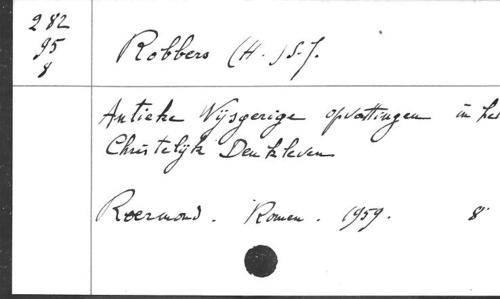 282
95
8
Robbers (H.) S.J.
Antieke Wijsgerige opvattingen in het
Christelijk Denkleven
Roermond. Romen. 1959. 8°